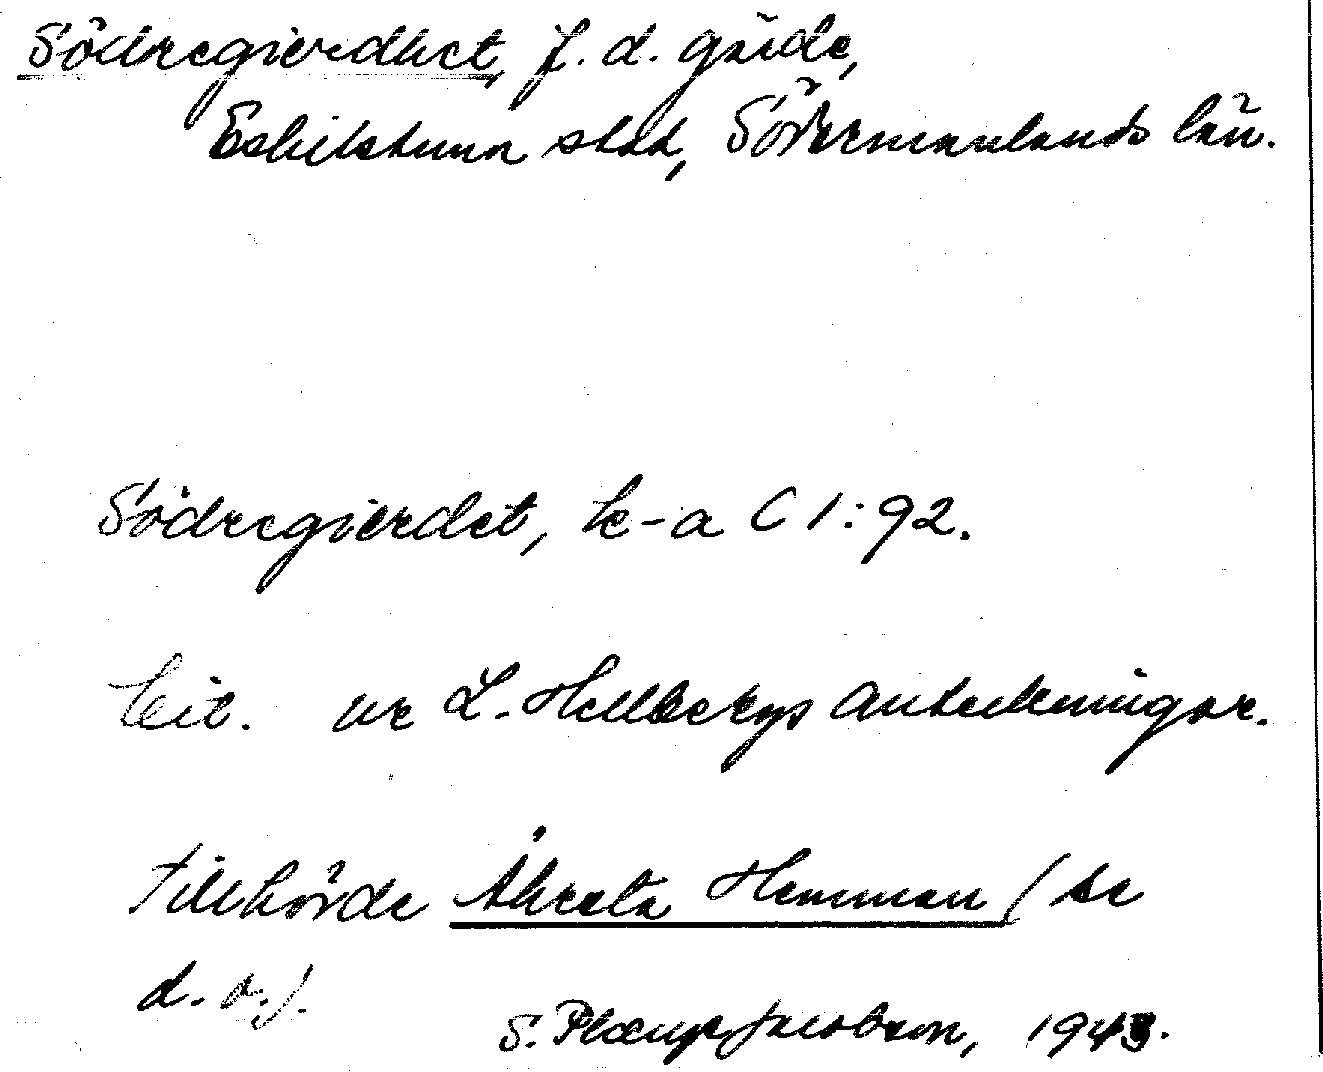 Södregierdhet, f. d. gärde,
Eskilstuna stad, Södermanlands län.
Södregierdet, k-a C 1:92.
Cit. ur L. Hellbergs anteckningar.
Tillhörde Åkresta Hemman (se
d. o.).
S. Jacobson, 1943.